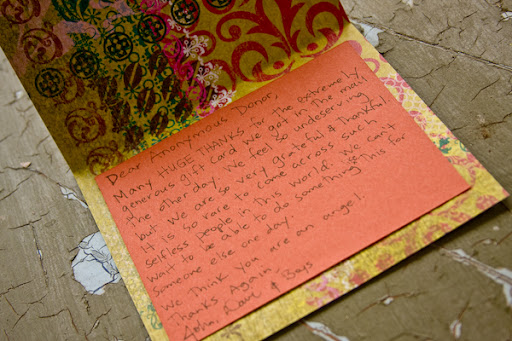 Dear Anonymous Donor,
Many HUGE THANKS for the extremely
generous gift card we got in the mail
the other day. We feel so undeserving
but we are so very grateful & thankful
It is so rare to come across such
selfless people in this world. We can't
wait to be able to do something like this for
someone else one day.
We think you are an angel.
Thanks Again,
& Boys